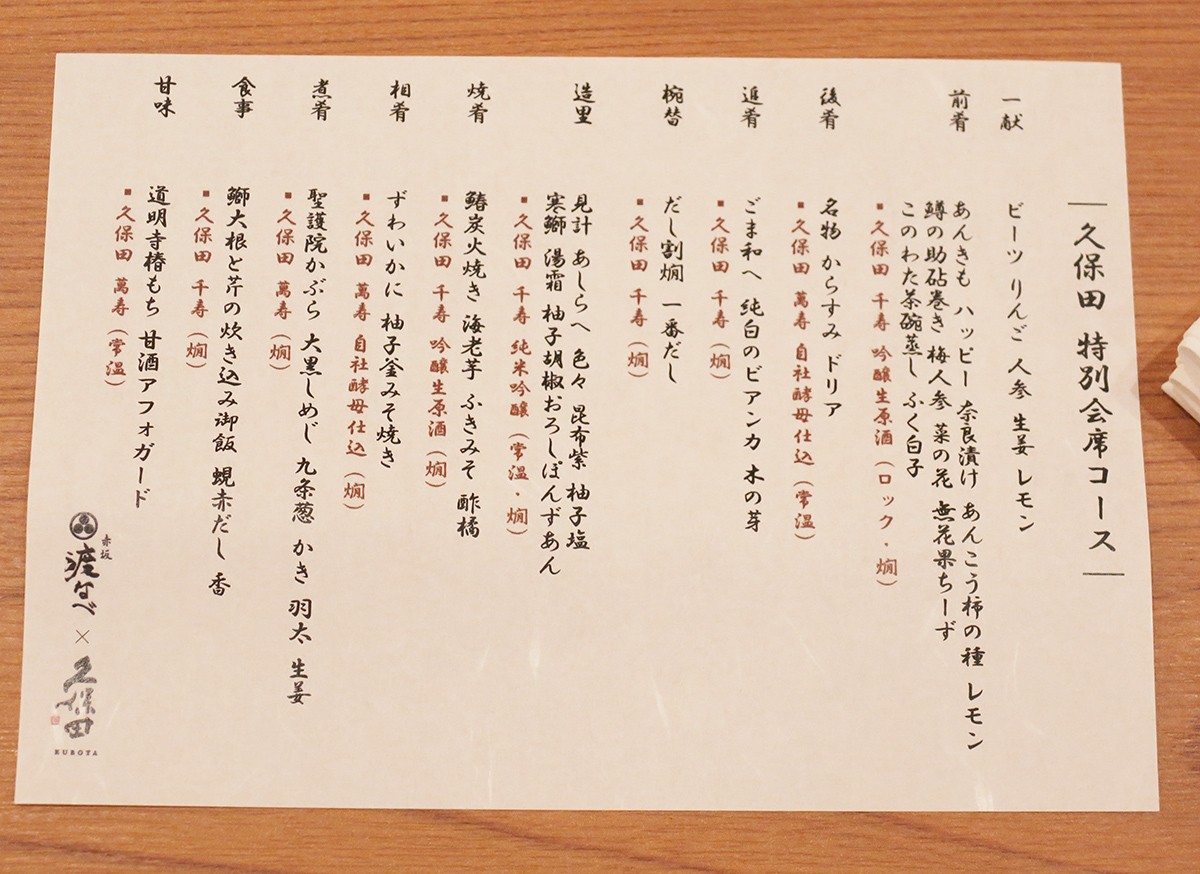 久保田 特別会席コース
一献
ビーツ りんご 人参 生姜 レモン
前肴
あんきも ハッピー 奈良漬け あんこう柿の種 レモン
鱒の助砧巻き 梅人参 菜の花 無花果ちーず
このわた茶碗蒸し ふく白子
■久保田 千寿 吟醸生原酒（ロック・燗）
後肴
名物 からすみ ドリア
■久保田 萬寿 自社酵母仕込（常温）
進肴
ごま和へ 純白のビアンカ 木の芽
■久保田 千寿（燗）
椀替
だし割燗 一番だし
■久保田 千寿（燗）
造里
見計 あしらへ 色々 昆布紫 柚子塩
寒鰤 湯霜 柚子胡椒おろしぽんずあん
■久保田 千寿 純米吟醸（常温・燗）
焼肴
鰆炭火焼き 海老芋 ふきみそ 酢橘
■久保田 千寿 吟醸生原酒（燗）
相肴
ずわいかに 柚子釜みそ焼き
■久保田 萬寿 自社酵母仕込（燗）
煮肴
聖護院かぶら 大黒しめじ 九条葱 かき 羽太 生姜
■久保田 萬寿（燗）
食事
鰤大根と芹の炊き込み御飯 蜆赤だし 香
■久保田 千寿（燗）
甘味
道明寺椿もち 甘酒アフォガード
■久保田 萬寿（常温）
赤坂
渡なべ
×
久保田
KUBOTA